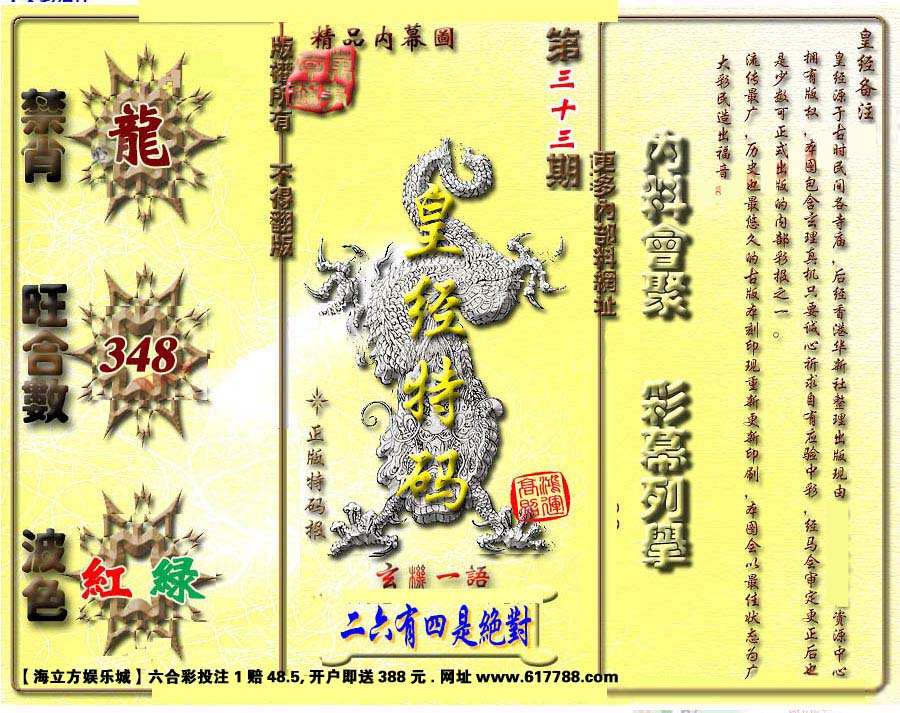 皇经备注
皇经源于古时民间各寺庙，后经香港华新社整理出版现由
资源中心
拥有版权，本图包含玄理真机只要诚心祈求自有应验中彩，经马会审定更正后也
是少数可正式出版的内部彩报之一。
流传最广，历史也最悠久的古版本刻印现重新更新印刷，本图会以最佳状态为广
大彩民造出福音
内料會聚
彩幕列舉
更多内部料網址
第三十三期
精品内幕圖
版權所有 不得翻版
皇经特码
正版特码报
鸿運
高照
玄機一語
二六有四是絕對
禁肖
龍
旺合數
348
波色
紅 綠
【海立方娱乐城】六合彩投注 1 赔 48.5, 开户即送 388 元 . 网址 www.617788.com